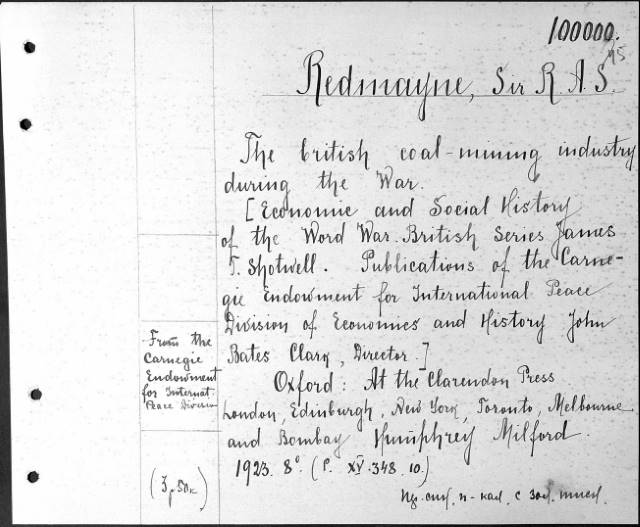 100000.
45
Redmayne, Sir R. A. S.
The british coal-mining industry
during the War.
[Economic and Social History
of the Word War. British Series James
T. Shotwell. Publications of the Carne-
gie Endowment for International Peace
Division of Economics and History John
Bates Clarq, Director.]
Oxford: At the Clarendon Press
London, Edinburgh, New York, Toronto, Melbourne
and Bombay Humphrey Milford.
1923. 8°. (P. XV. 348. 10.)
From the
Carnegie
Endowment
for Internat.
Peace Division
(3 р. 50к.)
с зол. тисн.